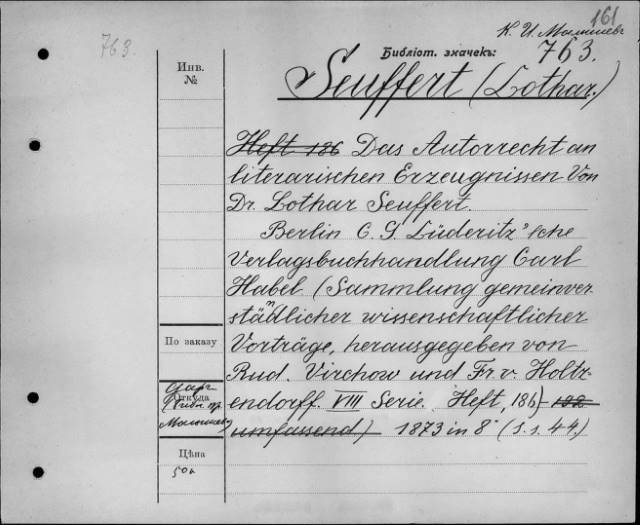 161
К. И. Малышев
763.
763.
Инв.
№
Библіот. значекъ:
Seuffert (Lothar.)
Heft 186 Das Autorrecht an
literarischen Erzeugnissen Von
Dr. Lothar Seuffert
Berlin C. G. Lüderitz'sche
Verlagsbuchhandlung Carl
Habel. (Sammlung gemeinver-
ständlicher wissenschaftlicher
Vorträge, herausgegeben von
Rud. Virchow und Fr. v. Holtz-
endorff. VIII Serie. Heft, 186)
umfassend) 1873 in 8° (S.s. 44.)
По заказу
Откуда
Малышева
Цѣна
50к